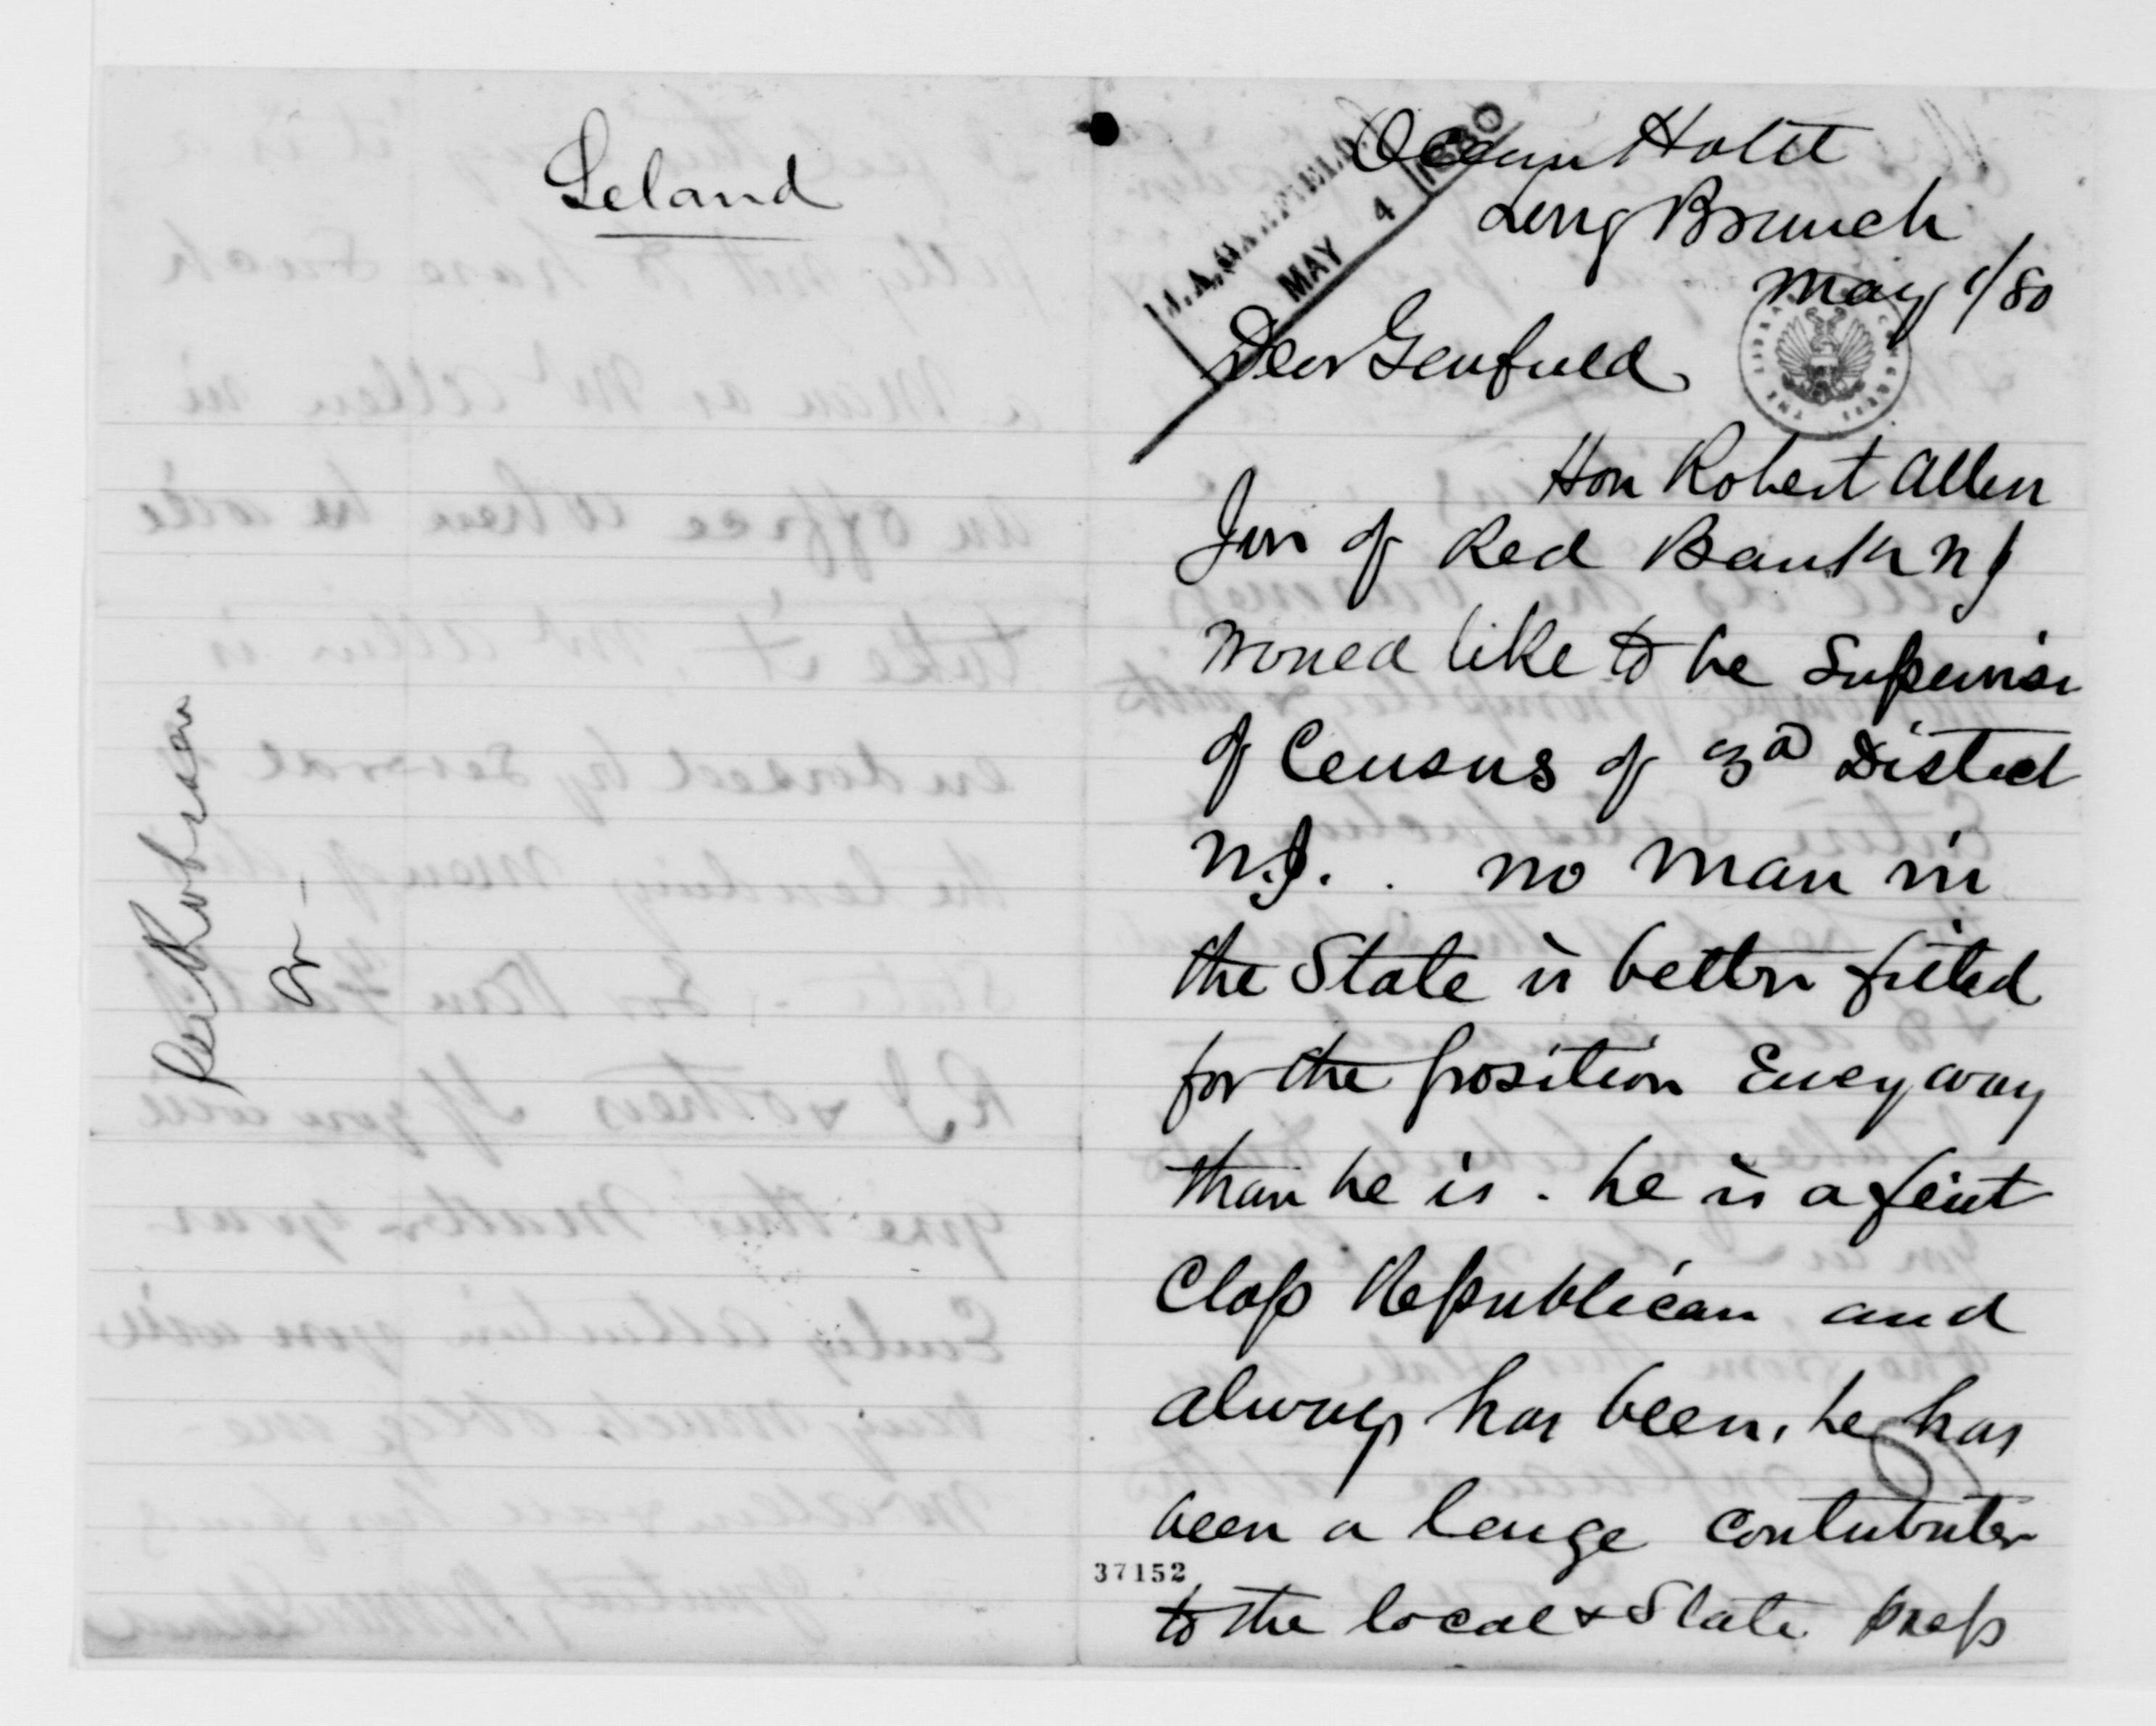 Leland
Ocean Hotel
Long Branch
May 1/80
J. A. GARFIELD.
MAY 4 1880
Dear Genfield
THE LIBRARY OF CONGRESS
Hon Robert Allen
Jun of Red Bank N J
would like to be Supervisor
of Census of 3d District
N.J. . no man in
the State is better fitted
for the position Every way
than he is . he is a first
Class Republican and
always has been, he has
been a large contributer
37152
to the local & State press